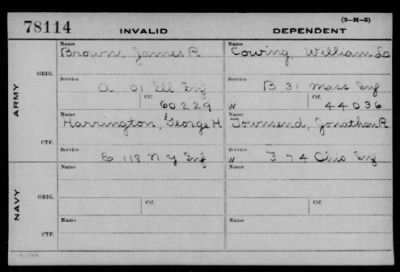 (3-H-5)
78114 INVALID DEPENDENT
Name Name
Brown, James R Cowing, William
ORIG. Service Service
A 101 Ill Inf B 31 Mass Inf
Ctf. Ctf.
60229 W 44036
ARMY
Name Name
Harrington, George H Townsend, Jonathan R
CTF. Service Service
E 118 N Y Inf W F 74 Ohio Inf
Name Name
ORIG.
Ctf. Ctf.
NAVY
Name Name
CTF.